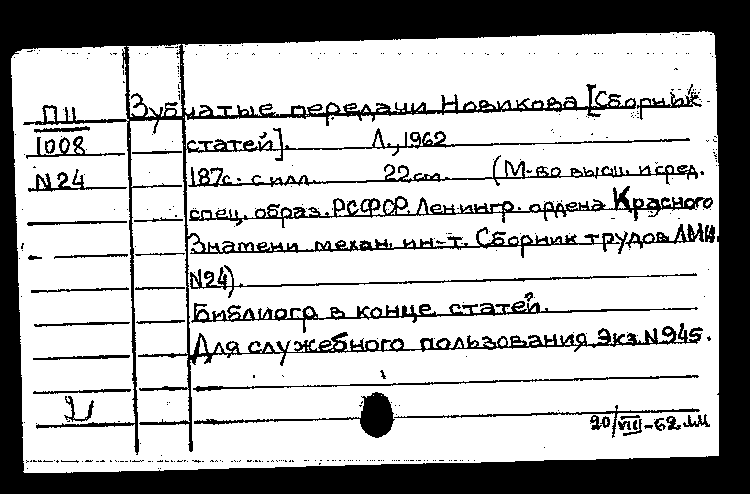 П II
1008
N24
Зубчатые передачи Новикова [Сборник
статей]. Л., 1962
187с. с илл. 22см. (М-во высш. и сред.
спец. образ. РСФСР. Ленингр. ордена Красного
Знамени механ. ин-т. Сборник трудов ЛМИ.
N24).
Библиогр. в конце статей.
Для служебного пользования. Экз. N945.
20/VIII-62.